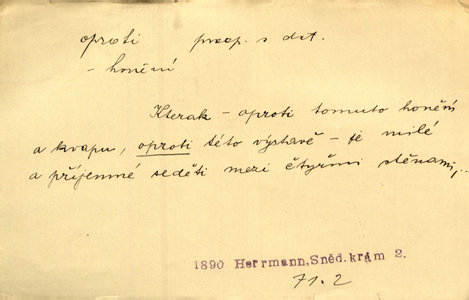 oproti praep. s dat.
- honění
Kterak - oproti tomuto honění
a kvapu, oproti této výstavě - je milé
a příjemné seděti mezi čtyřmi stěnami,..
1890 Herrmann, Sněd. krám 2.
71.2